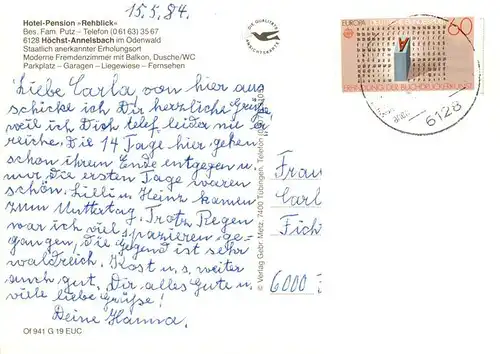 15.5.84.
Hotel-Pension »Rehblick«
Bes. Fam. Putz – Telefon (0 61 63) 35 67
6128 Höchst-Annelsbach im Odenwald
Staatlich anerkannter Erholungsort
Moderne Fremdenzimmer mit Balkon, Dusche/WC
Parkplatz – Garagen – Liegewiese – Fernsehen
DIE QUALITÄTS
ANSICHTSKARTE
Liebe Carla, von hier aus
schicke ich Dir herzliche Grüße
weil ich Dich telef. leider nie er
reiche. Die 14 Tage hier gehen
schon ihrem Ende entgegen u.
nur die ersten Tage waren
schön. Lilli u. Heinz kamen
zum Muttertag. Trotz Regen
war ich viel spazieren ge-
gangen, die Gegend ist sehr
waldreich. Kost u. s. weiter
auch gut. Dir alles Gute u.
viele liebe Grüße!
Deine Hanna.
Of 941 G 19 EUC
© Verlag Gebr. Metz, 7400 Tübingen, Telefon
EUROPA
60
ERFINDUNG DER BUCHDRUCKERKUNST
6128
Frau
Carl
Fich
6000